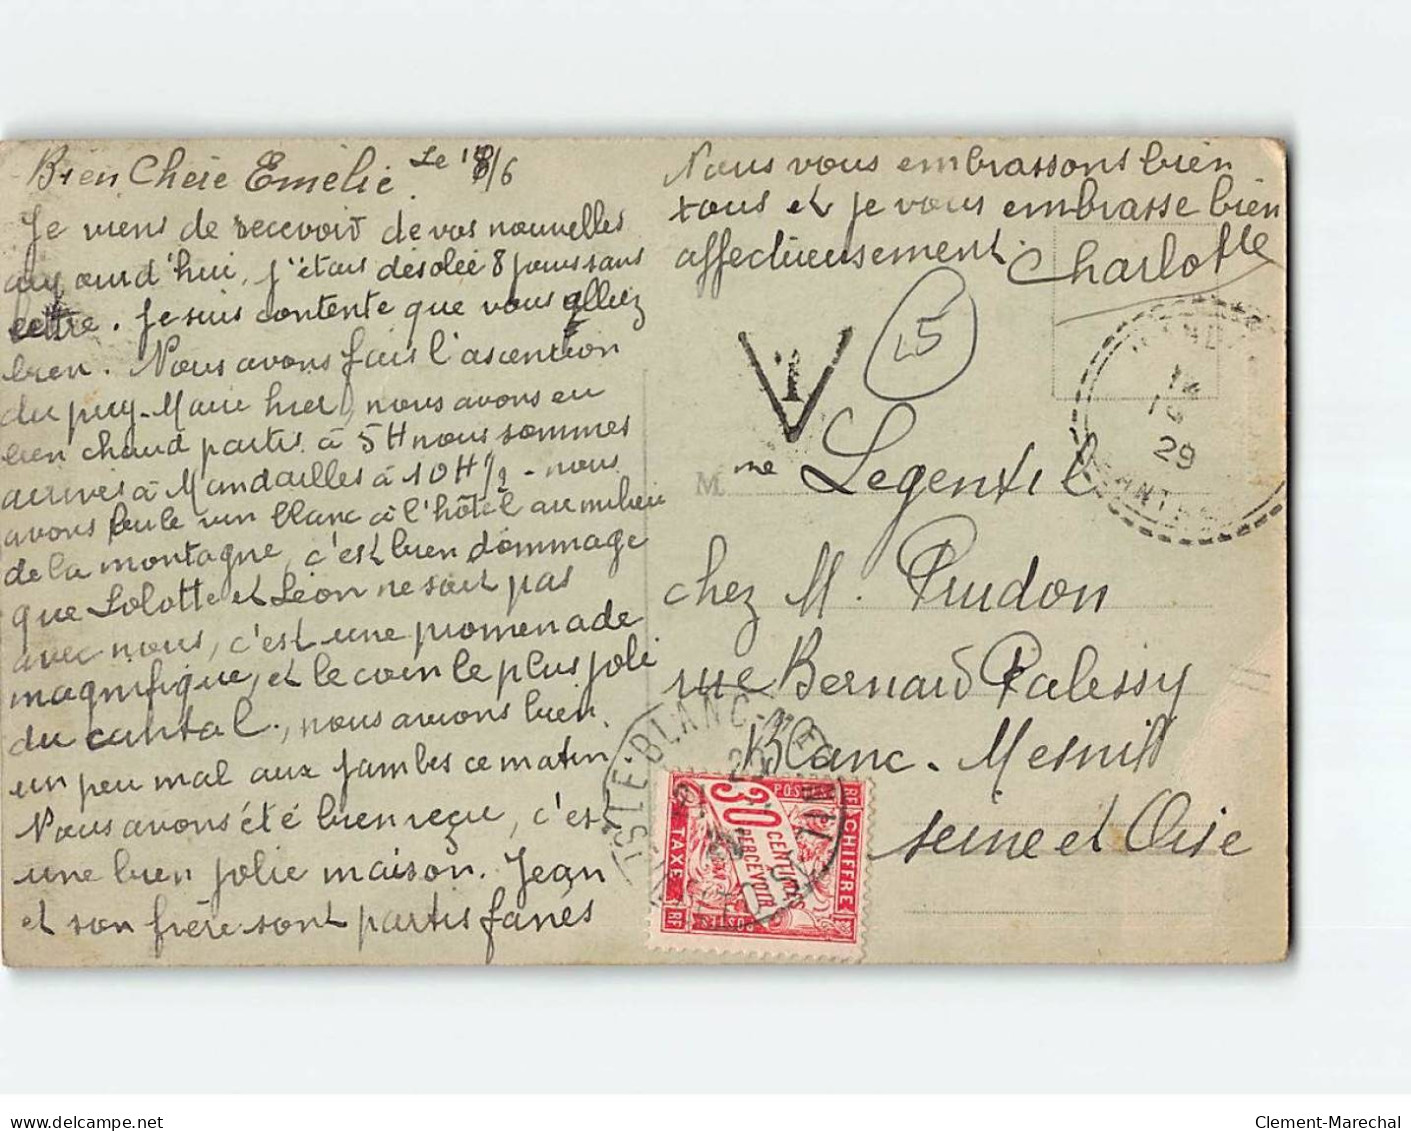 Bien Chère Emélie. Le 18/6
Je viens de recevoir de vos nouvelles
aujourd'hui, j'étais désolée 8 jours sans
lettre. Je suis contente que vous alliez
bien. Nous avons fais l'ascention
du puy-Marie hier, nous avons eu
bien chaud partis à 5H nous sommes
arrivés à Mandailles à 10H 1/2 - nous
avons bu le vin blanc à l'hôtel au milieu
de la montagne, c'est bien dommage
que Lolotte et Léon ne soit pas
avec nous, c'est une promenade
magnifique, et le coin le plus joli
du cantal., nous avions bien
un peu mal aux jambes ce matin.
Nous avons été bien reçu, c'est
une bien jolie maison. Jean
et son frère sont partis fanés
Nous vous embrassons bien
tous et je vous embrasse bien
affectueusement. Charlotte
T
15
29
CANTAL
M me Legentil
chez M. Prudon
rue Bernard Palessy
Blanc-Mesnil
seine et Oise
LE-BLANC-MESNIL
30
CENTIMES
A PERCEVOIR
CHIFFRE
TAXE
POSTES
RF
delcampe.net
Clement-Marechal